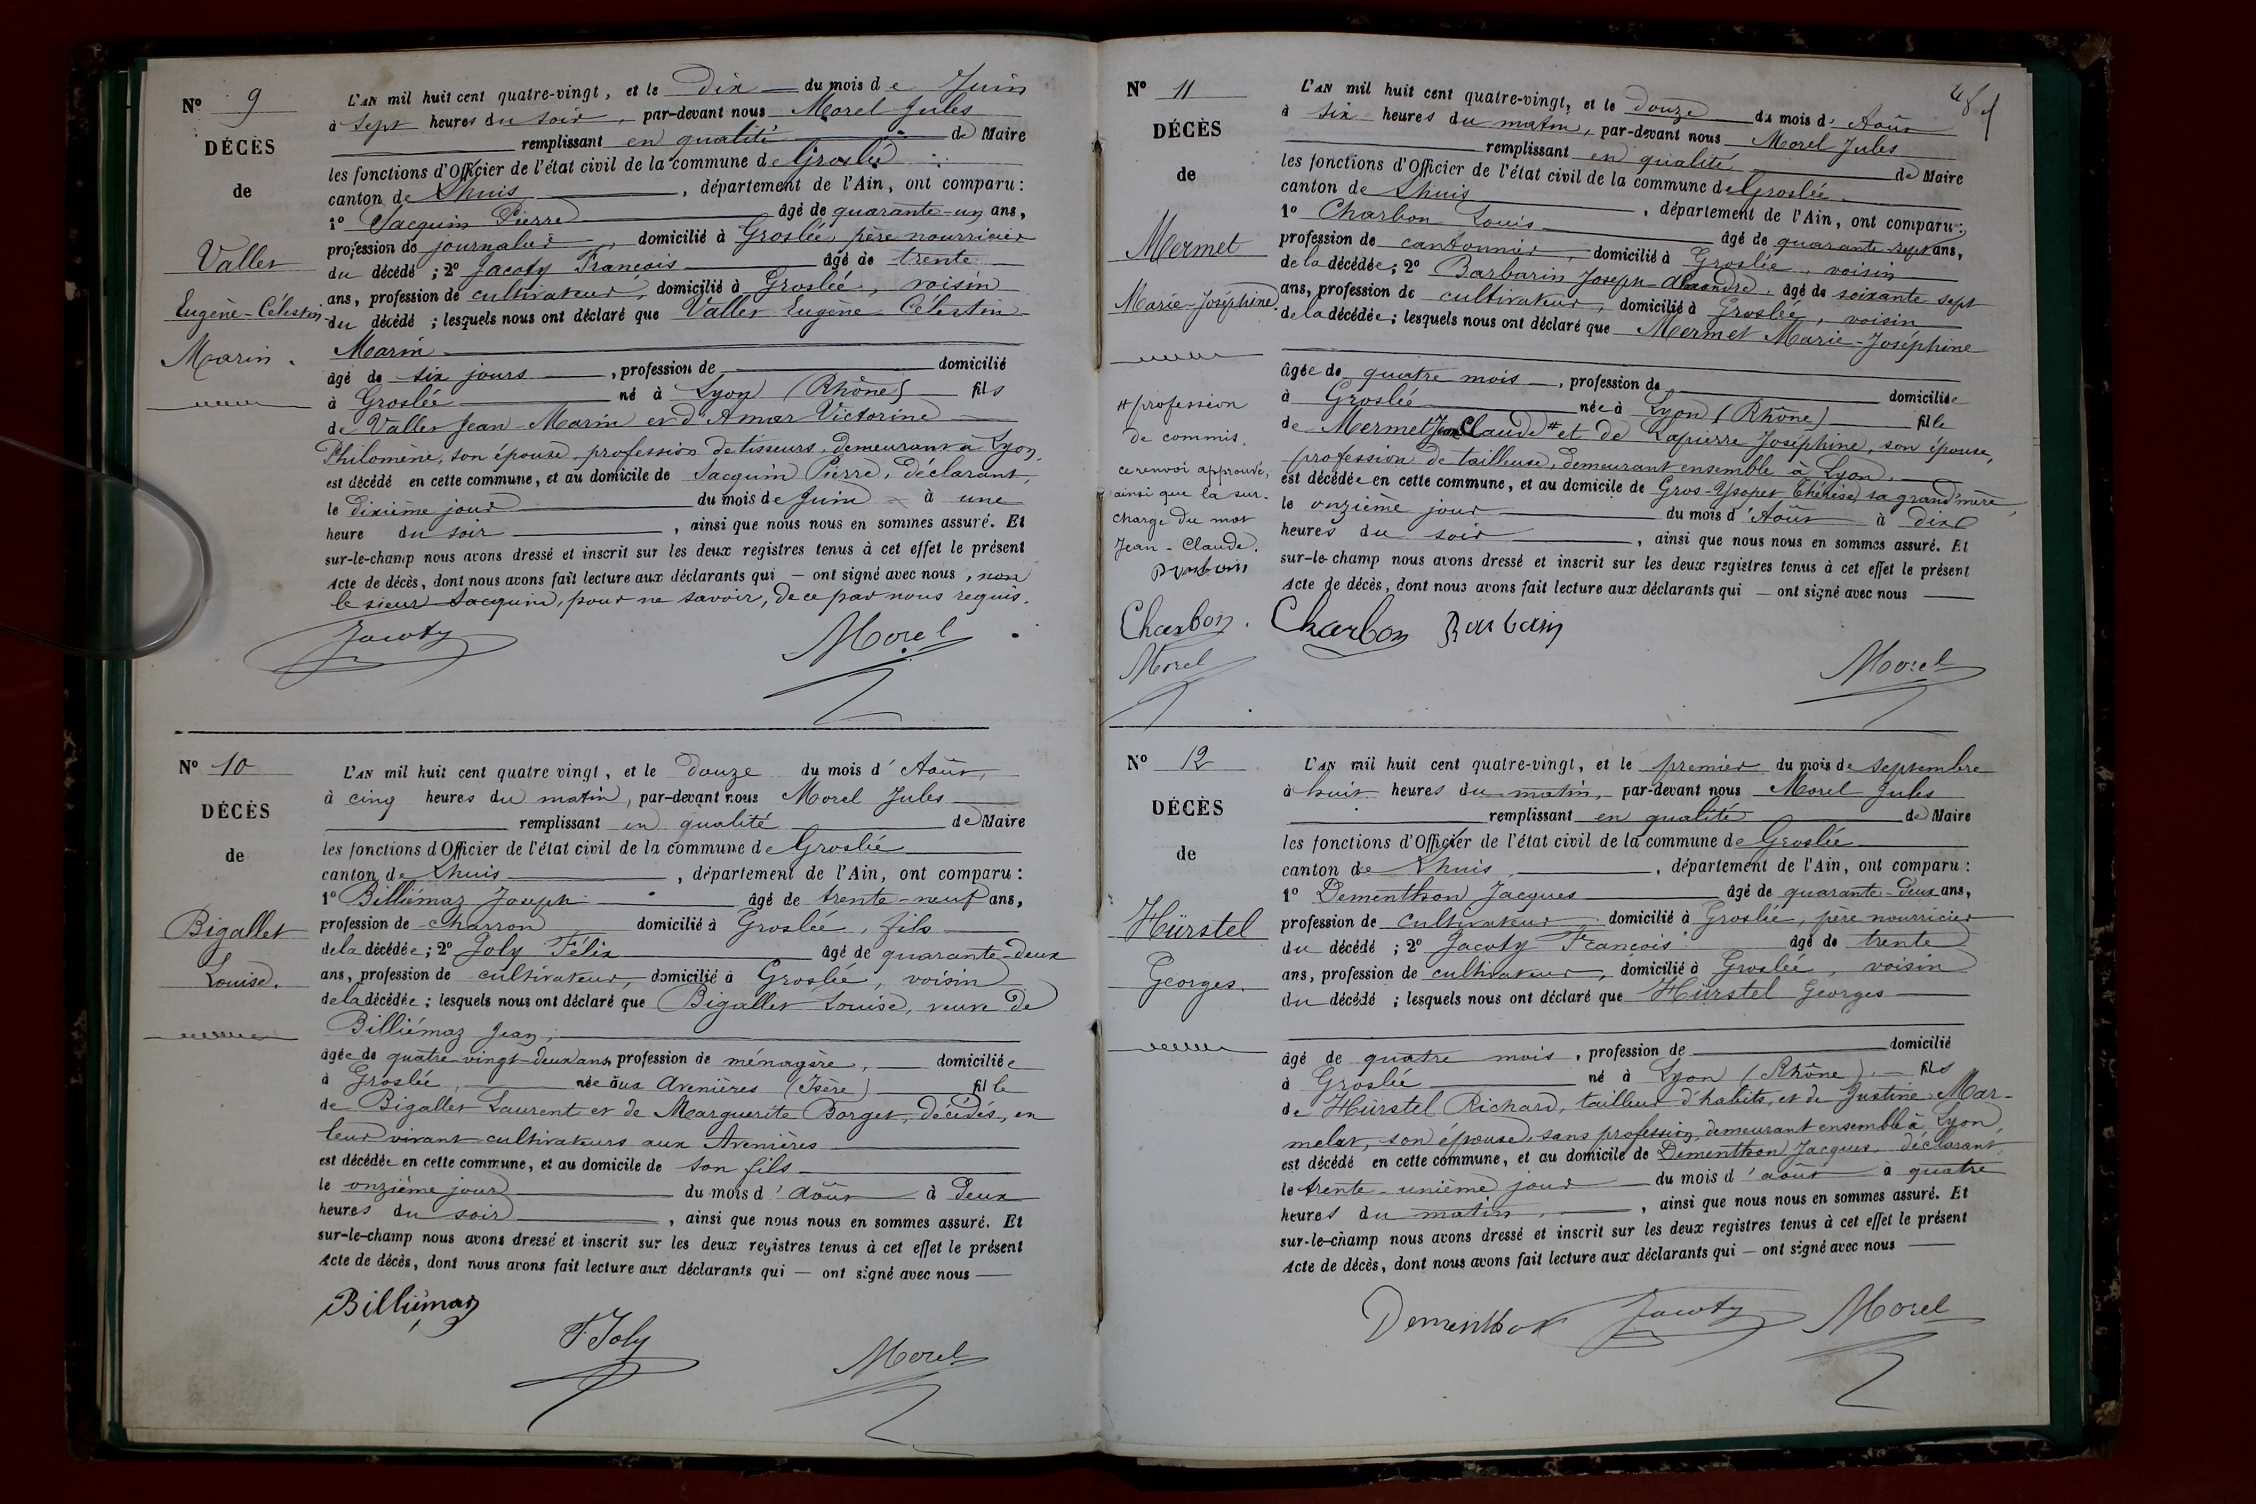 N° 9
DÉCÈS
de
Vallet
Eugène-Célestin-
Marin.
L'AN mil huit cent quatre-vingt, et le Dix du mois de Juin
à sept heures du soir, par-devant nous Morel Jules
remplissant en qualité de Maire
les fonctions d'Officier de l'état civil de la commune de Groslée
canton de Lhuis, département de l'Ain, ont comparu :
1° Jacquin Pierre âgé de quarante-un ans,
profession de journalier, domicilié à Groslée, père nourricier
du décédé ; 2° Jacoty François âgé de trente
ans, profession de cultivateur, domicilié à Groslée, voisin
du décédé ; lesquels nous ont déclaré que Vallet Eugène-Célestin
Marin
âgé de six jours, profession de domicilié
à Groslée né à Lyon (Rhône) fils
de Vallet Jean-Marin et d'Amar Victorine
Philomène, son épouse, profession de tisseurs, demeurant à Lyon,
est décédé en cette commune, et au domicile de Jacquin Pierre, déclarant,
le dixième jour du mois de Juin à une
heure du soir, ainsi que nous nous en sommes assuré. Et
sur-le-champ nous avons dressé et inscrit sur les deux registres tenus à cet effet le présent
Acte de décès, dont nous avons fait lecture aux déclarants qui — ont signé avec nous, non
le sieur Jacquin, pour ne savoir, de ce par nous requis.
Jacoty
Morel
N° 10
DÉCÈS
de
Bigallet
Louise.
L'AN mil huit cent quatre vingt, et le Douze du mois d'Août,
à cinq heures du matin, par-devant nous Morel Jules
remplissant en qualité de Maire
les fonctions d'Officier de l'état civil de la commune de Groslée
canton de Lhuis, département de l'Ain, ont comparu :
1° Billiémaz Joseph âgé de trente-neuf ans,
profession de charron domicilié à Groslée, fils
de la décédée ; 2° Joly Félix âgé de quarante-deux
ans, profession de cultivateur, domicilié à Groslée, voisin
de la décédée ; lesquels nous ont déclaré que Bigallet Louise, veuve de
Billiémaz Jean,
âgée de quatre vingt-deux ans, profession de ménagère, domiciliée
à Groslée, née aux Avenières (Isère) fille
de Bigallet Laurent et de Marguerite Borget, décédés, en
leur vivant cultivateurs aux Avenières
est décédée en cette commune, et au domicile de son fils
le onzième jour du mois d'Août à Deux
heures du soir, ainsi que nous nous en sommes assuré. Et
sur-le-champ nous avons dressé et inscrit sur les deux registres tenus à cet effet le présent
Acte de décès, dont nous avons fait lecture aux déclarants qui — ont signé avec nous
Billiémaz
F. Joly
Morel
N° 11
DÉCÈS
de
Mermet
Marie-Joséphine.
# profession
de commis.
ce renvoi approuvé,
ainsi que la sur-
charge du mot
Jean-Claude.
Barbarin
Charbon.
Morel
L'AN mil huit cent quatre-vingt, et le Douze du mois d'Août
à six heures du matin, par-devant nous Morel Jules
remplissant en qualité de Maire
les fonctions d'Officier de l'état civil de la commune de Groslée
canton de Lhuis, département de l'Ain, ont comparu :
1° Charbon Louis âgé de quarante-sept ans,
profession de cantonnier, domicilié à Groslée, voisin
de la décédée ; 2° Barbarin Joseph-Alexandre, âgé de soixante sept
ans, profession de cultivateur, domicilié à Groslée, voisin
de la décédée ; lesquels nous ont déclaré que Mermet Marie-Joséphine
âgée de quatre mois, profession de domiciliée
à Groslée née à Lyon (Rhône) fille
de Mermet Jean Claude # et de Lapierre Joséphine, son épouse,
profession de tailleuse, demeurant ensemble à Lyon,
est décédée en cette commune, et au domicile de Gros-Ysopet Thérèse, sa grand'mère,
le onzième jour du mois d'Août à Dix
heures du soir, ainsi que nous nous en sommes assuré. Et
sur-le-champ nous avons dressé et inscrit sur les deux registres tenus à cet effet le présent
Acte de décès, dont nous avons fait lecture aux déclarants qui — ont signé avec nous
Charbon Barbarin
Morel
N° 12
DÉCÈS
de
Hürstel
Georges.
L'AN mil huit cent quatre-vingt, et le premier du mois de septembre
à huit heures du matin, par-devant nous Morel Jules
remplissant en qualité de Maire
les fonctions d'Officier de l'état civil de la commune de Groslée
canton de Lhuis, département de l'Ain, ont comparu :
1° Dementhon Jacques âgé de quarante-Deux ans,
profession de cultivateur, domicilié à Groslée, père nourricier
du décédé ; 2° Jacoty François âgé de trente
ans, profession de cultivateur, domicilié à Groslée, voisin
du décédé ; lesquels nous ont déclaré que Hürstel Georges
âgé de quatre mois, profession de domicilié
à Groslée né à Lyon (Rhône). fils
de Hürstel Richard, tailleur d'habits, et de Justine Mar-
melat, son épouse, sans profession, demeurant ensemble à Lyon,
est décédé en cette commune, et au domicile de Dementhon Jacques, déclarant,
le trente-unième jour du mois d'août à quatre
heures du matin, ainsi que nous nous en sommes assuré. Et
sur-le-champ nous avons dressé et inscrit sur les deux registres tenus à cet effet le présent
Acte de décès, dont nous avons fait lecture aux déclarants qui — ont signé avec nous
Dementhon Jacoty Morel